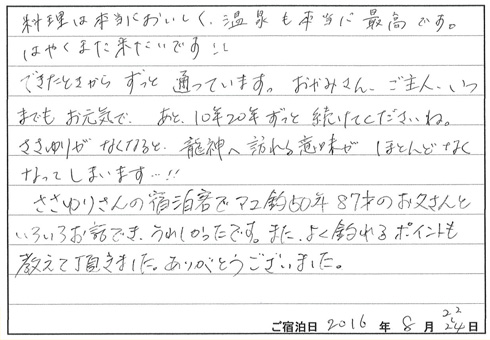 料理は本当においしく、温泉も本当に最高です。
はやくまた来たいです!!
できたときから ずっと 通っています。おかみさん、ご主人、いつ
までも お元気で、あと、10年20年ずっと 続けてくださいね。
ささゆりがなくなると、龍神へ訪れる意味が ほとんどなく
なってしまいます…!!
ささゆりさんの宿泊客で アユ釣り50年 87才のお父さんと
いろいろお話でき、うれしかったです。また、よく釣れる ポイントも
教えて頂きました。ありがとうございました。
ご宿泊日 2016 年 8 月 22 24 日